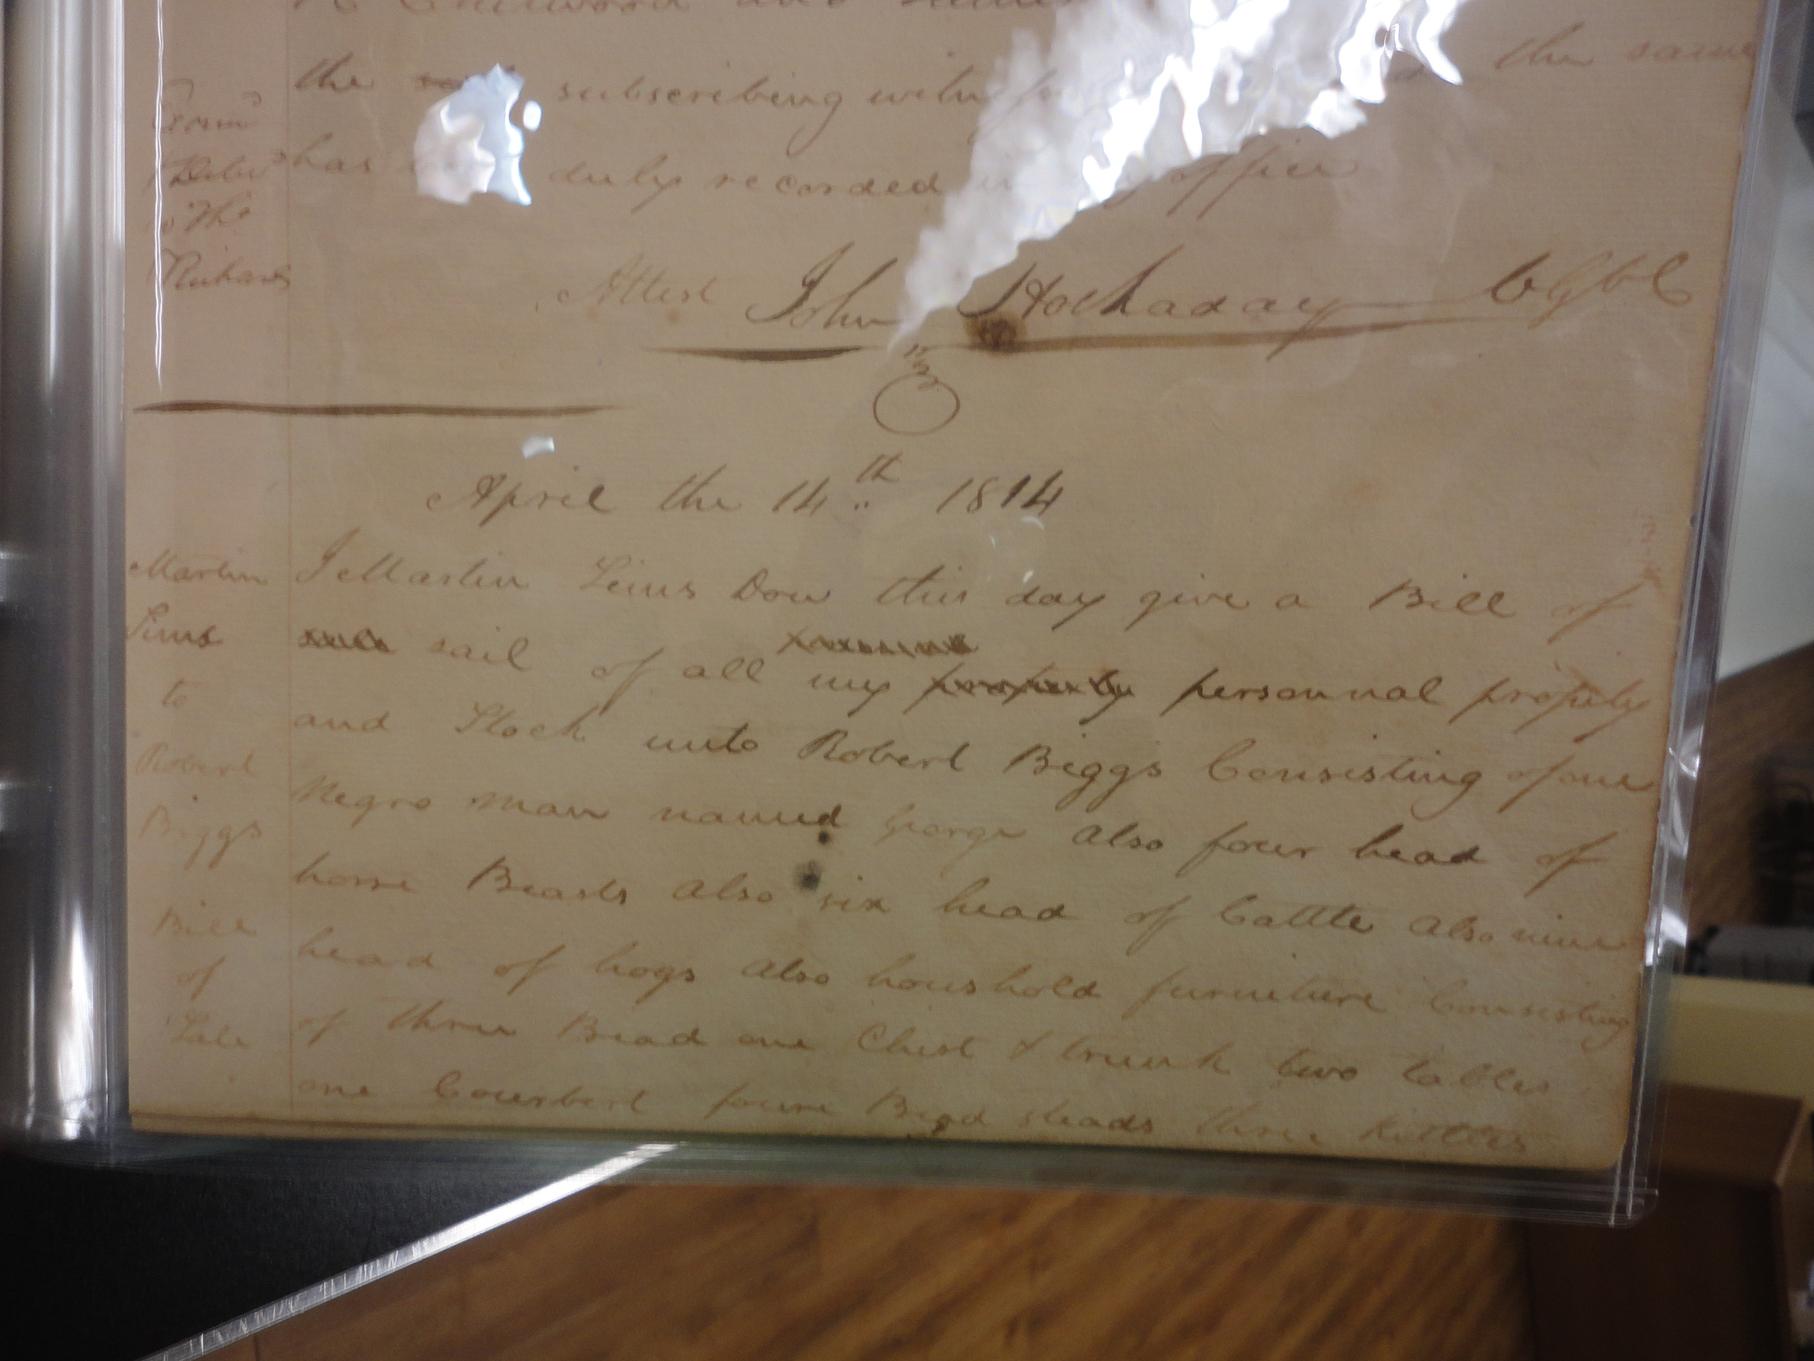 the subscribing the same
has duly recorded office
Attest John Hockaday
April the 14th 1814
Martin
Sims
to
Robert
Biggs
Bill
of
Sale
I Martin Sims Dou this day give a Bill of
sail of all my personnal property
and Stock unto Robert Biggs Consisting of one
Negro man named George also four head of
horse Beasts also six head of Cattle also nine
head of hogs also houshold furniture Consisting
of three Bead one Chest & trunk two tables
one foure Bead steads three Kittles